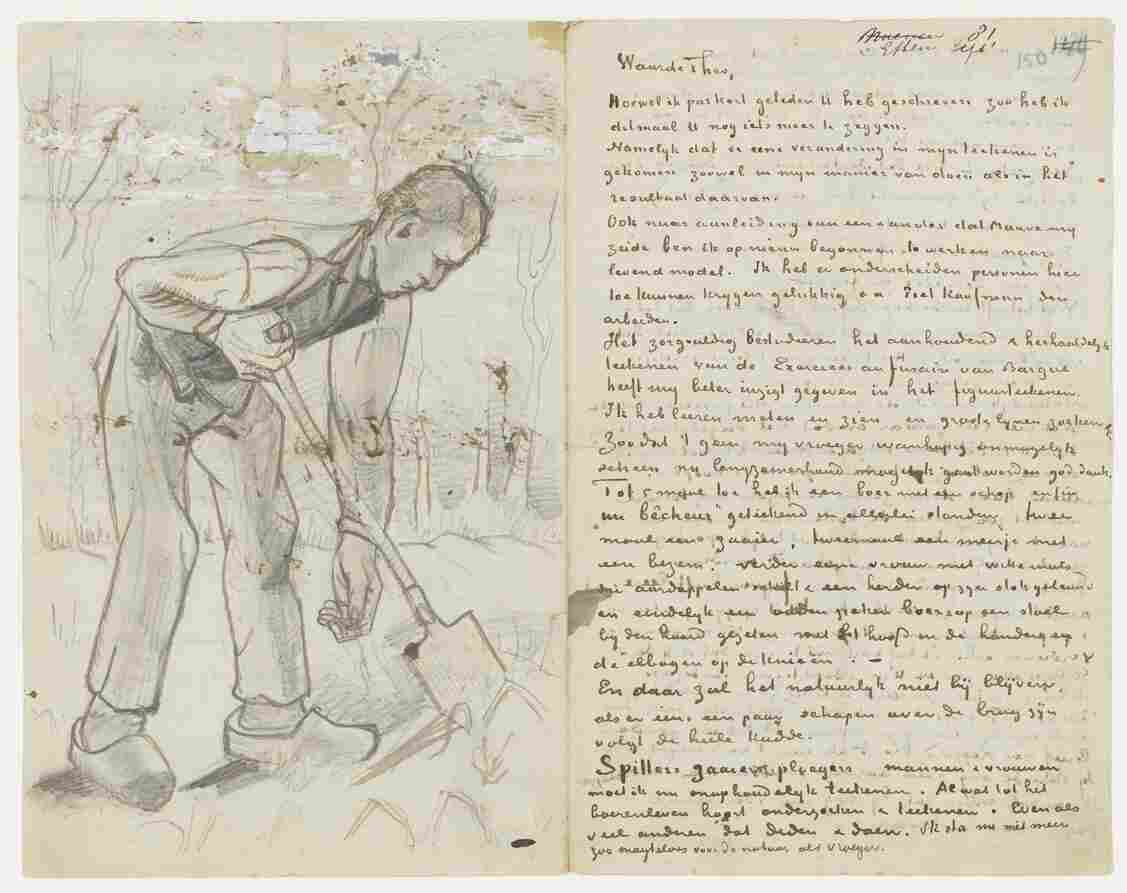 Maurer 81
Etten Sept
150 140
Waarde Theo,
Hoewel ik pas kort geleden U heb geschreven zoo heb ik
ditmaal U nog iets meer te zeggen.
Namelyk dat er eene verandering in myn teekenen is
gekomen zoowel in myn manier van doen als in het
resultaat daarvan.
Ook naar aanleiding van een & ander dat Mauve my
zeide ben ik op nieuw begonnen te werken naar
levend model. Ik heb er onderscheiden personen hier
toe kunnen krygen gelukkig o a Piet Kaufmann den
arbeider.
Het zorgvuldig bestuderen het aanhoudend & herhaaldelyk
teekenen van de Exercices au fusain van Bargue
heeft my beter inzigt gegeven in het figuurteekenen.
Ik heb leeren meten en zien en groote lynen zoeken &
Zoodat 't geen my vroeger wanhopig onmogelyk
scheen nu langzamerhand mogelyk gaat worden god dank.
Tot 5 maal toe heb ik een boer met een schop enfin
"un bêcheur" geteekend in allerlei standen, twee
maal een zaaier, tweemaal een meisje met
een bezem. Verder eene vrouw met witte muts
die aardappelen schilt & een herder op zyn stok geleund
en eindelyk een ouden zieken boer op een stoel
by den haard gezeten met het hoofd in de handen en
de elbogen op de knieën. –
En daar zal het natuurlyk niet bij blijven,
als er eens een paar schapen over de brug zyn
volgt de heele kudde.
Spitters zaaiers ploegers mannen & vrouwen
moet ik nu onophoudelyk teekenen. Al wat tot het
boerenleven hoort onderzoeken & teekenen. Even als
veel anderen dat deden & doen. Ik sta nu niet meer
zoo magteloos voor de natuur als vroeger.